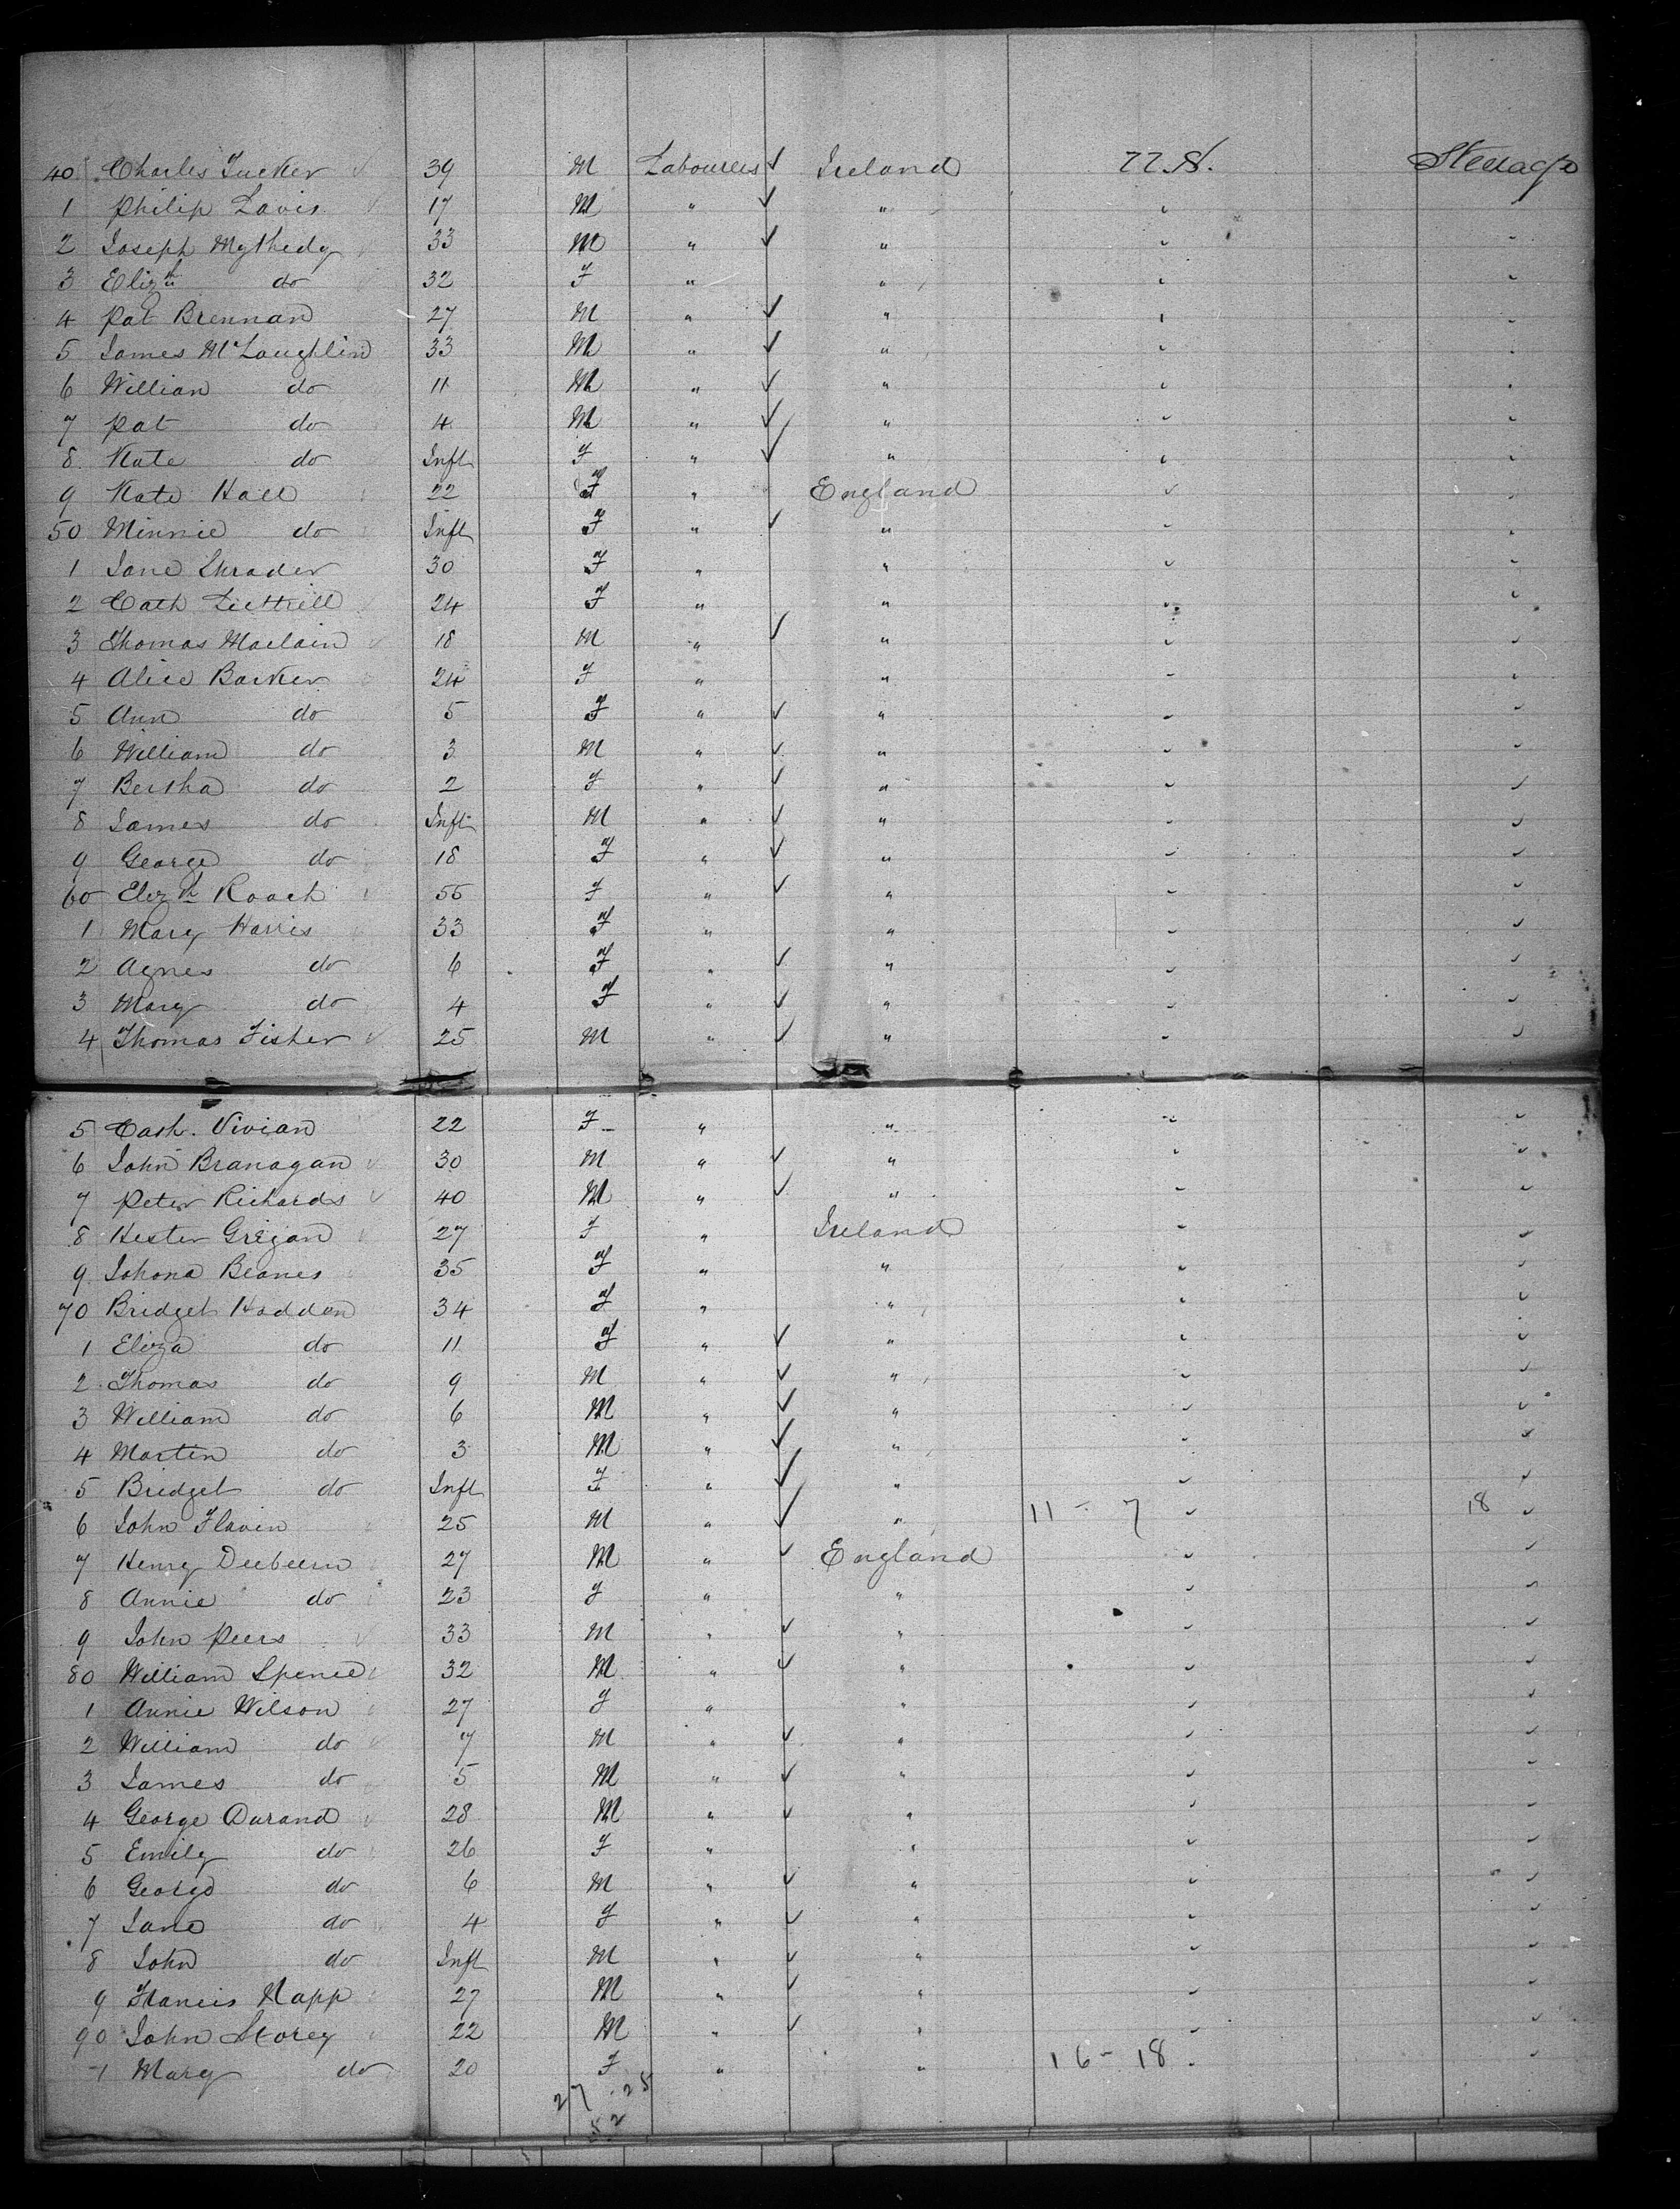 40 Charles Tucker 39 M Labourers Ireland U.S. Steerage
1 Philip Lavis 17 M " " " "
2 Joseph Mythedy 33 M " " " "
3 Elizth do 32 F " " " "
4 Pat Brennan 27 M " " " "
5 James McLaughlin 33 M " " " "
6 William do 11 M " " " "
7 Pat do 4 M " " " "
8 Kate do Inft F " " " "
9 Kate Hall 22 F " England " "
50 Minnie do Inft F " " " "
1 Jane Shrader 30 F " " " "
2 Cath Liettrell 24 F " " " "
3 Thomas Maclain 18 M " " " "
4 Alice Barker 24 F " " " "
5 Ann do 5 F " " " "
6 William do 3 M " " " "
7 Bertha do 2 F " " " "
8 James do Inft M " " " "
9 George do 18 F " " " "
60 Elizth Roach 55 F " " " "
1 Mary Harris 33 F " " " "
2 Agnes do 6 F " " " "
3 Mary do 4 F " " " "
4 Thomas Fisher 25 M " " " "
5 Cath. Vivian 22 F " " " "
6 John Branagan 30 M " " " "
7 Peter Richards 40 M " " " "
8 Hester Gregan 27 F " Ireland " "
9 Johona Beanes 35 F " " " "
70 Bridget Haddon 34 F " " " "
1 Eliza do 11 F " " " "
2 Thomas do 9 M " " " "
3 William do 6 M " " " "
4 Martin do 3 M " " " "
5 Bridget do Inft F " " " "
6 John Flavin 25 M " " 11 - 7 " 18 "
7 Henry Deebeern 27 M " England " "
8 Annie do 23 F " " " "
9 John Peers 33 M " " " "
80 William Spence 32 M " " " "
1 Annie Wilson 27 F " " " "
2 William do 7 M " " " "
3 James do 5 M " " " "
4 George Durand 28 M " " " "
5 Emily do 26 F " " " "
6 George do 6 M " " " "
7 Jane do 4 F " " " "
8 John do Inft M " " " "
9 Francis Napp 27 M " " " "
90 John Storey 22 M " " " "
1 Mary do 20 F " " 16 - 18 " "
27 25
52